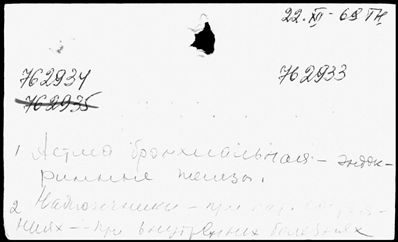 22.XII-69 ТН
762934 762933
762935
1 Астма бронхиальная - эндок-
ринные железы.
2 Надпочечники - при
ниях - при внутренних болезнях